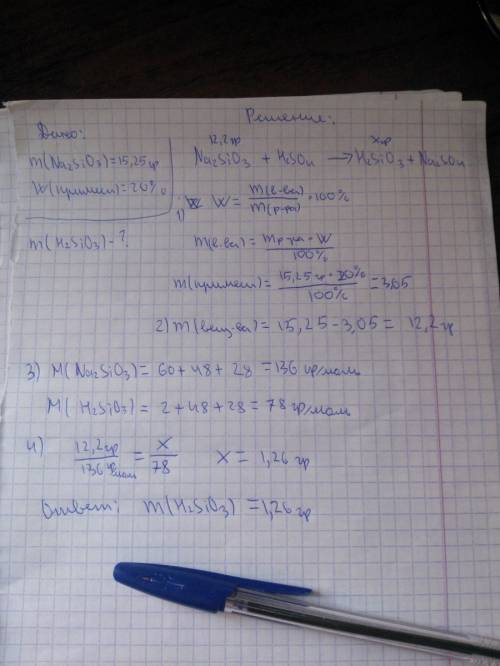 Решение:
Дано:
m(Na₂SiO₃)=15,25гр
W(примеси)=20%
m(H₂SiO₃)-?
12,2гр xгр
Na₂SiO₃ + H₂SO₄ → H₂SiO₃ + Na₂SO₄
1) W = m(в-ва)/m(р-ра) · 100%
m(в-ва) = mр-ра · W / 100%
m(примеси) = 15,25гр · 20% / 100% = 3,05
2) m(вещ-ва) = 15,25 - 3,05 = 12,2гр
3) M(Na₂SiO₃) = 60 + 48 + 28 = 136 гр/моль
M(H₂SiO₃) = 2 + 48 + 28 = 78 гр/моль
4) 12,2гр / 136 гр/моль = x / 78 x = 1,26 гр
Ответ: m(H₂SiO₃) = 1,26 гр